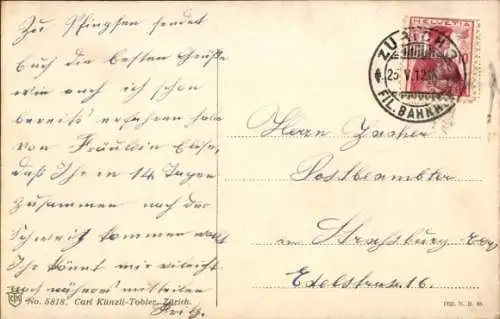 Zu Pfingsten sendet
Euch die besten Grüße
Wie auch ich schon
bereits erfahren habe
von Fräulein Elise,
daß Ihr in 14 Tagen
zusammen nach der
Schweiz kommen wollt
Ihr könnt mir vieleicht
noch näheres mitteilen
Fritz.
No. 5818. Carl Künzli-Tobler, Zürich.
HELVETIA
ZÜRICH 2
25. V. 12
FIL. BAHNH.
Herrn
Postbeamter
in Strassburg
Edelstrasse 16.